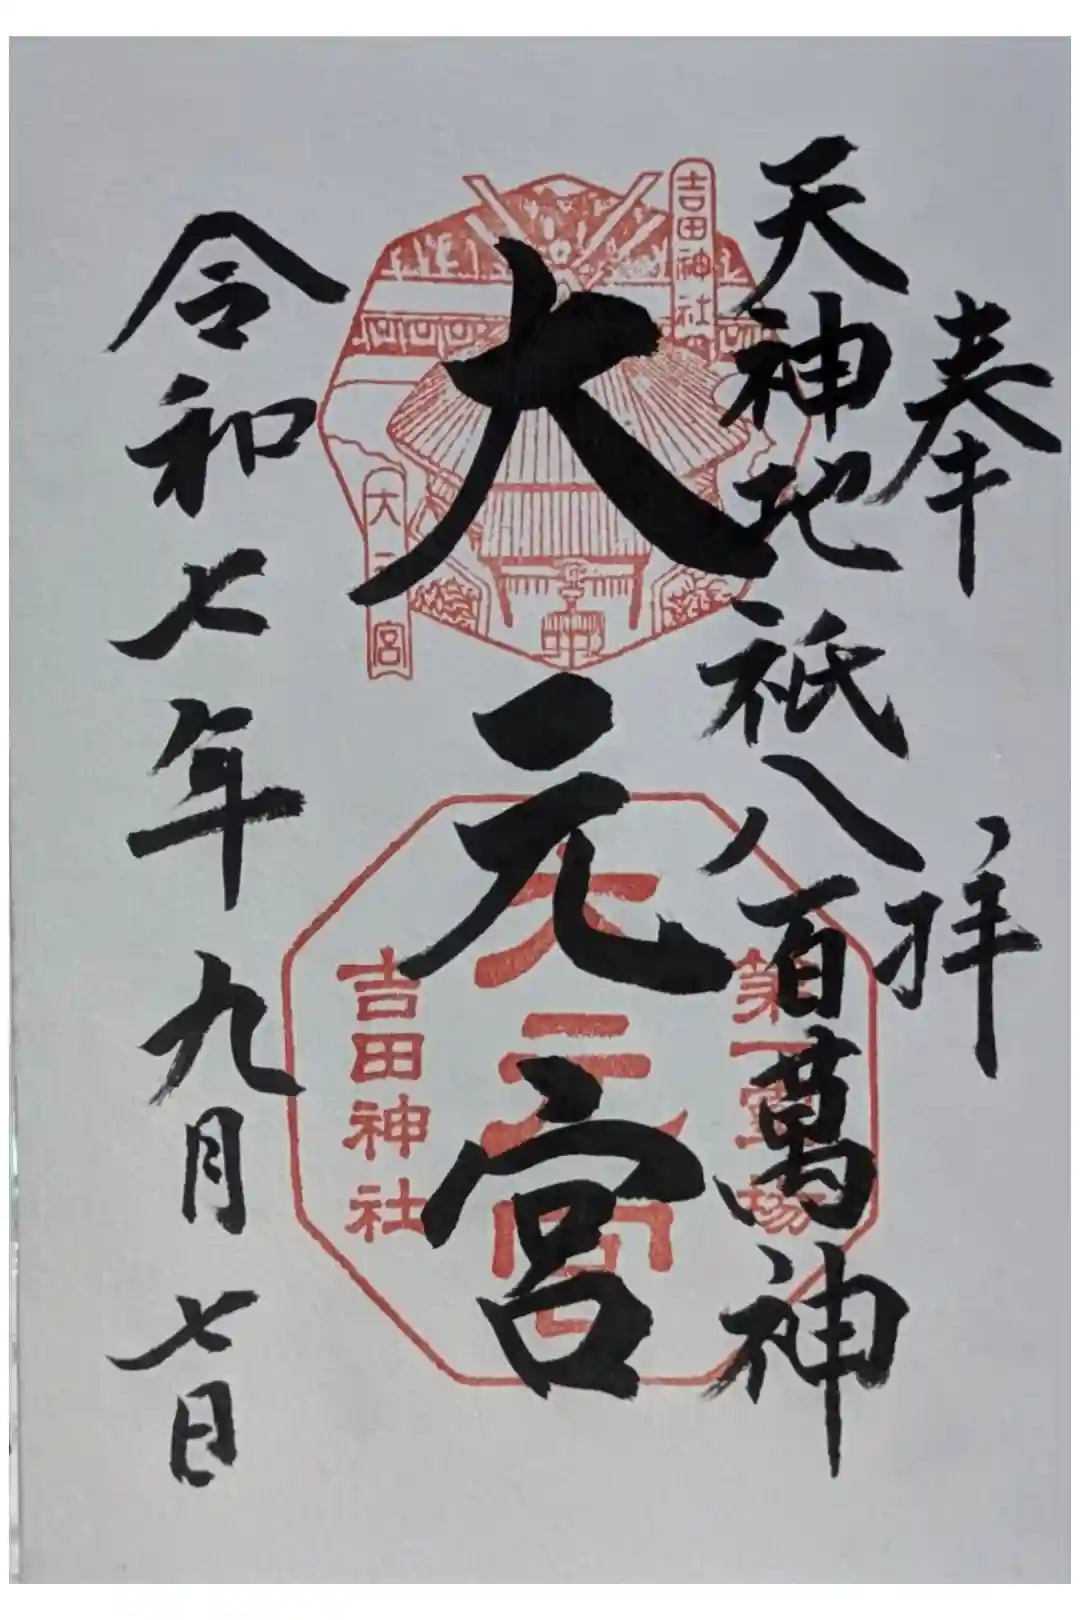 奉拝
天神地祇八百萬神
大元宮
令和七年九月七日
吉田神社
大元宮
第一霊場
大元宮
吉田神社